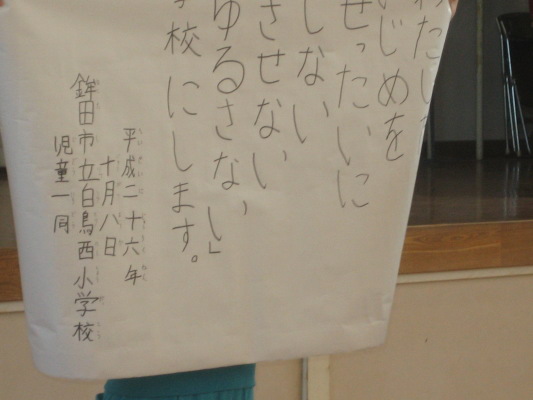 わたし
いじめを
ぜったいに
しない
させない
ゆるさない」
校にします。
平成二十六年
十月八日
鉾田市立白鳥西小学校
児童一同